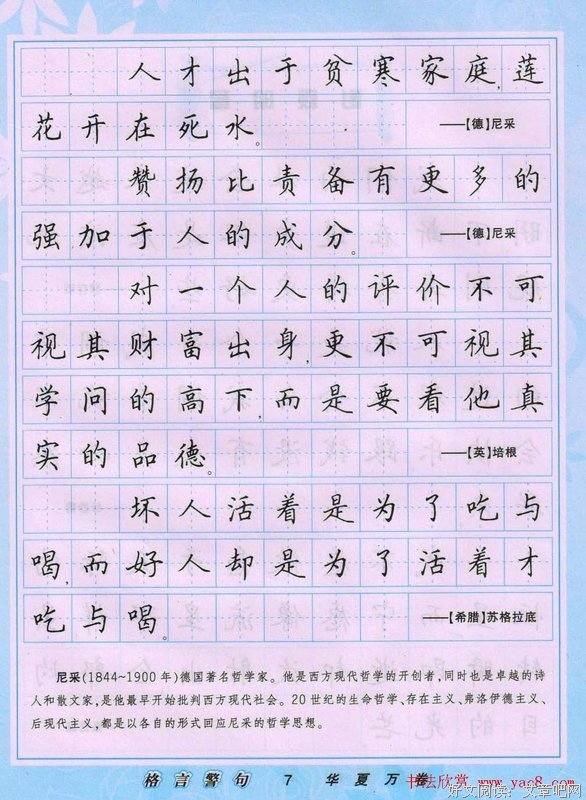 人才出于贫寒家庭,莲
花开在死水。 ——【德】尼采
赞扬比责备有更多的
强加于人的成分。 ——【德】尼采
对一个人的评价不可
视其财富出身,更不可视其
学问的高下,而是要看他真
实的品德。 ——【英】培根
坏人活着是为了吃与
喝,而好人却是为了活着才
吃与喝。 ——【希腊】苏格拉底
尼采(1844~1900年)德国著名哲学家。他是西方现代哲学的开创者,同时也是卓越的诗
人和散文家,是他最早开始批判西方现代社会。20世纪的生命哲学、存在主义、弗洛伊德主义、
后现代主义,都是以各自的形式回应尼采的哲学思想。
格言警句 7 华夏万卷
书法欣赏 www.yac8.com
好文阅读:文章吧网